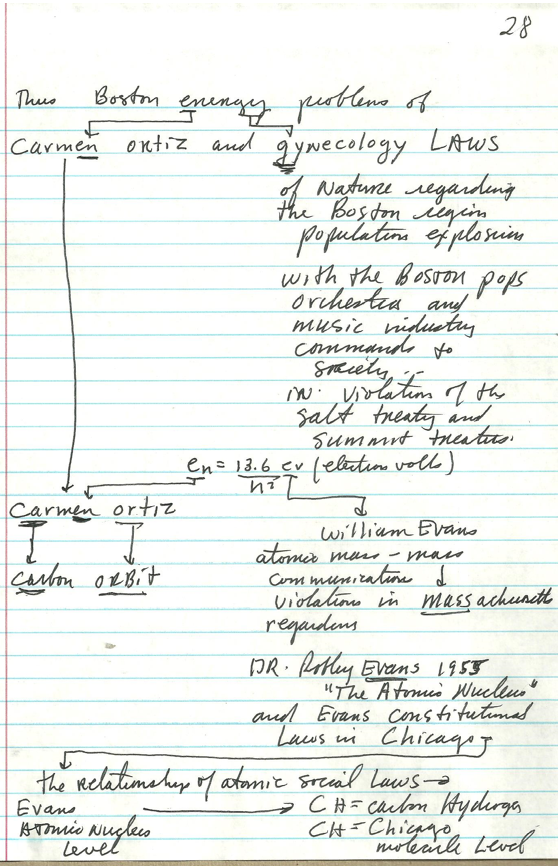 28
Thus Boston energy problems of
Carmen ortiz and gynecology LAWS
of Nature regarding
the Boston region
population explosion
with the Boston pops
orchestra and
music industry
commands to
society ..
in violation of the
salt treaty and
summit treaties.
en = 13.6 ev (electron volts)
n²
Carmen ortiz
William Evans
atomic mass - mass
Carbon ORBit
communications
violations in MASSachusetts
regardens
DR. Robley Evans 1955
"The Atomic Nucleus"
and Evans constitutional
Laws in Chicago
the relationship of atomic social Laws →
Evans → CH = carbon Hydrogen
Atomic Nucleus CH = Chicago
Level molecule Level